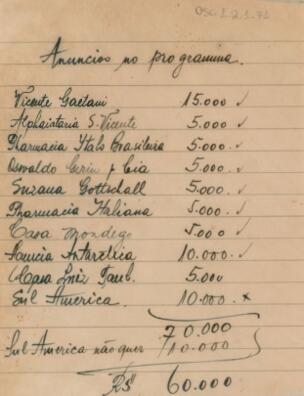 OSG 1.2.1.71
Anuncios no programma.
Vicente Gaetani 15.000 ✓
Alphaiataria S. Vicente 5.000 ✓
Pharmacia Italo Brasileira 5.000 ✓
Oswaldo & Cia 5.000 ✓
Suzana Gottschall 5.000 ✓
Pharmacia Italiana 5.000 ✓
Casa Mondego 5.000 ✓
Antarctica 10.000 ✓
Casa Luiz 5.000
Sul America. 10.000. x
70.000
Sul America não quer 10.000
Rs 60.000